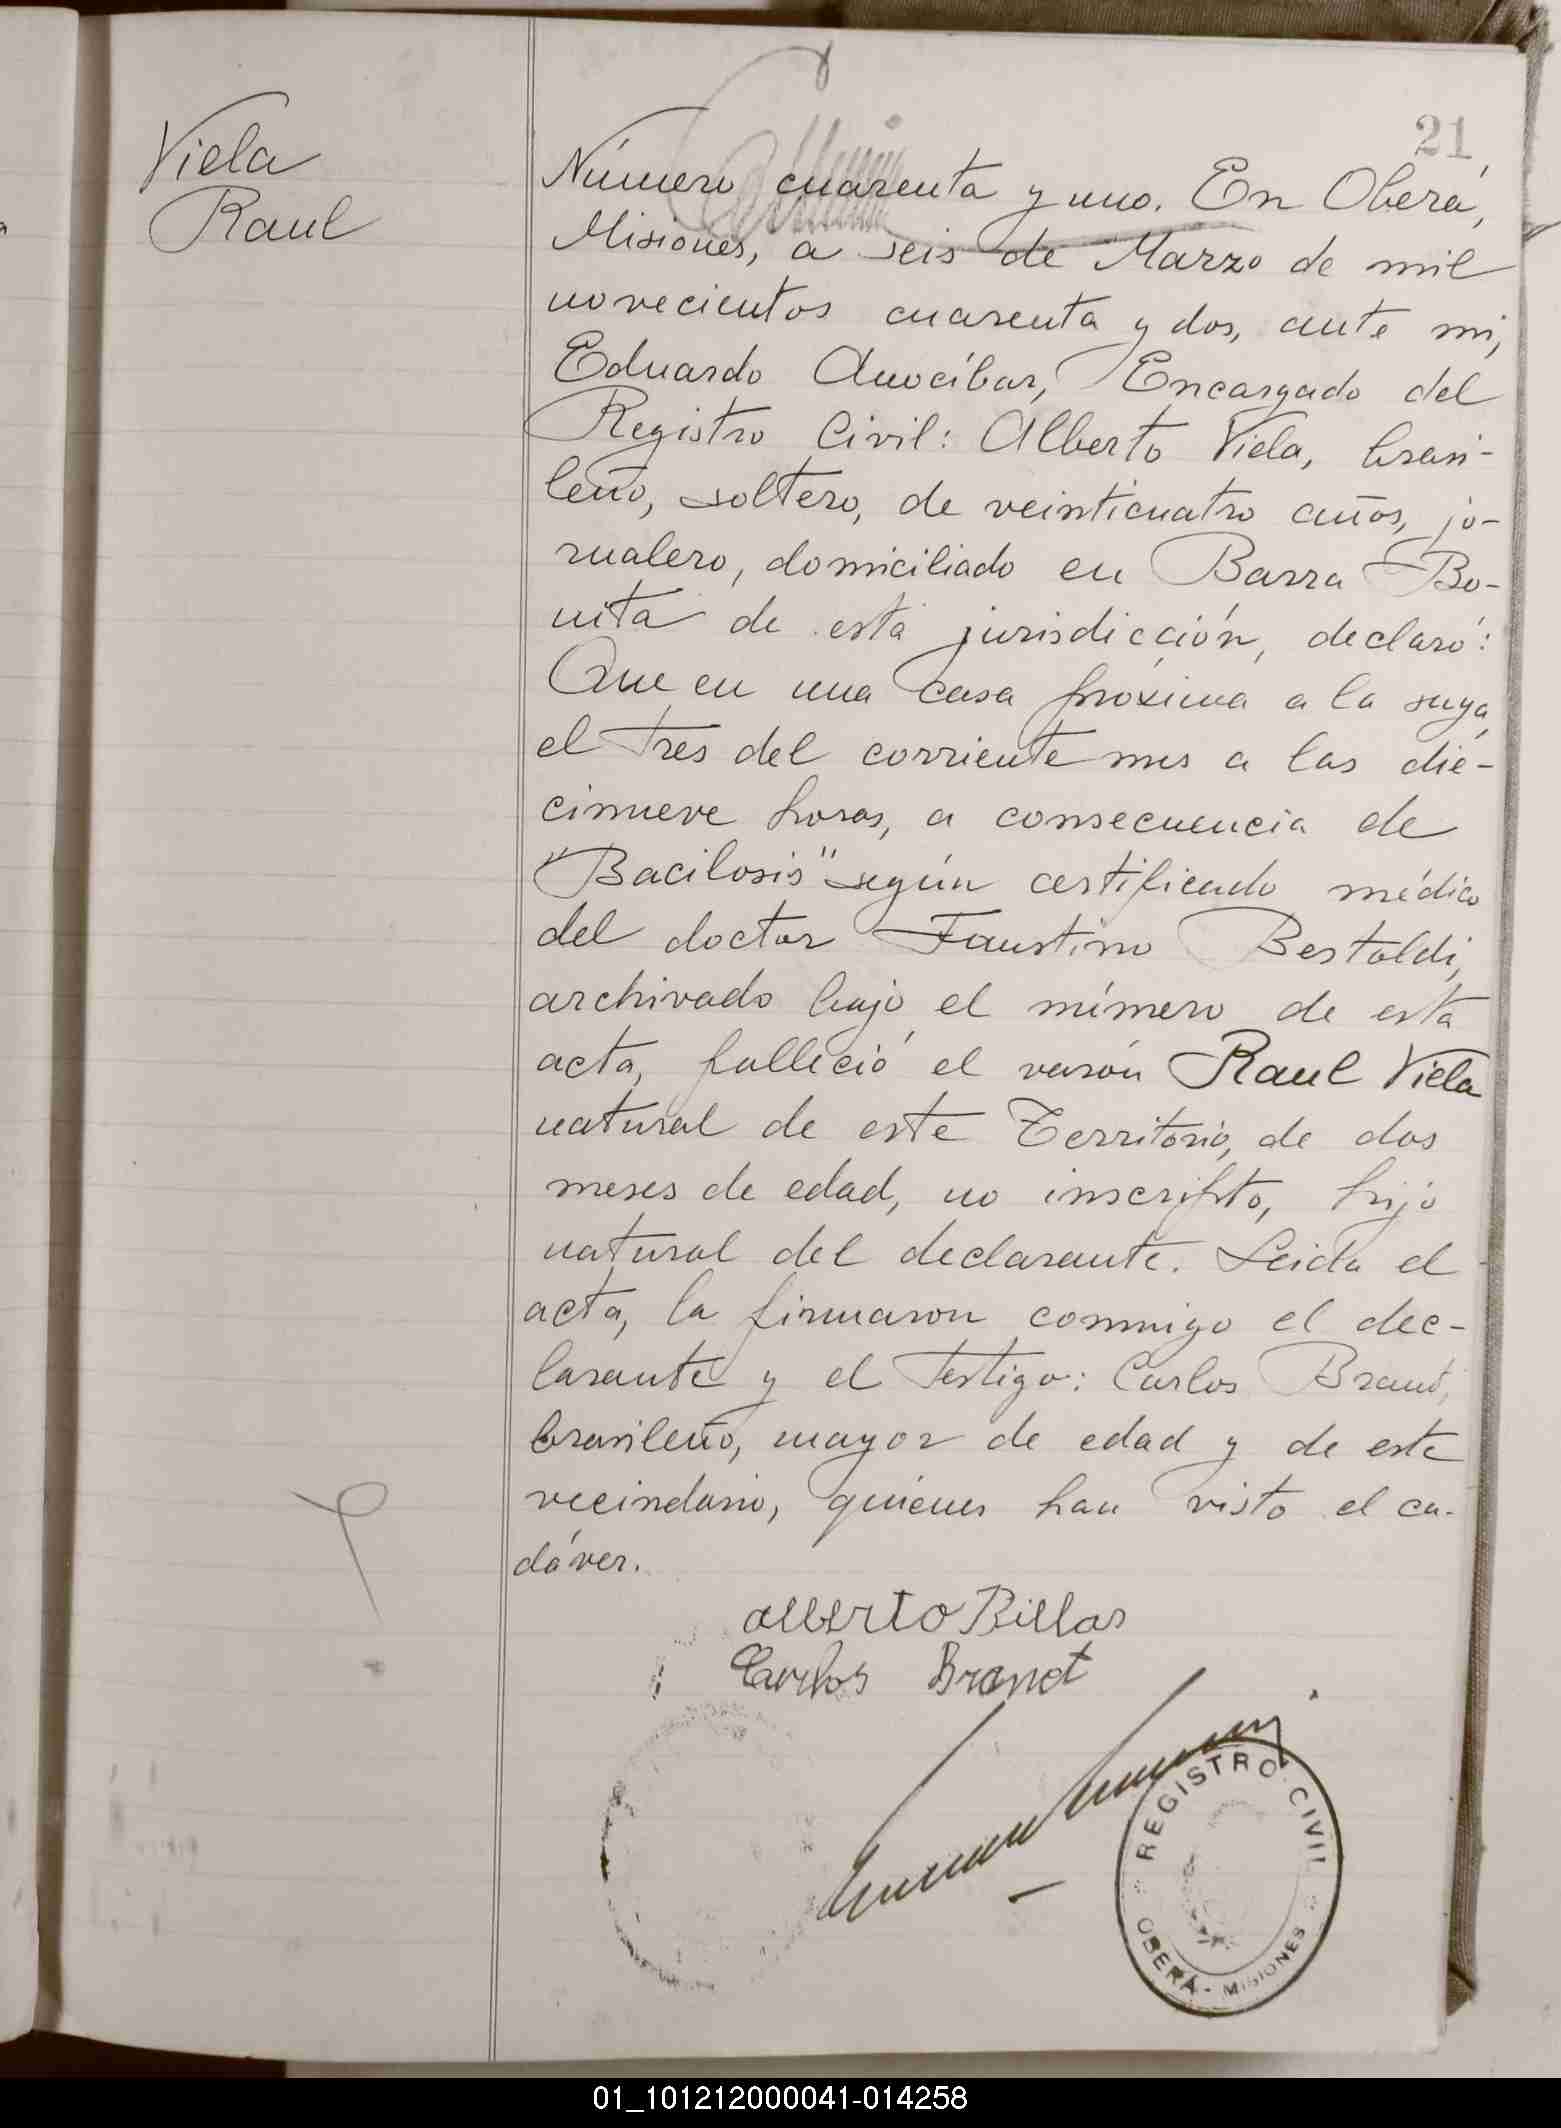 21
Viela
Raul
Número cuarenta y uno. En Oberá,
Misiones, a seis de Marzo de mil
novecientos cuarenta y dos, ante mi,
Eduardo Anocíbar, Encargado del
Registro Civil: Alberto Viela, brasi-
leño, soltero, de veinticuatro años, jo-
rnalero, domiciliado en Barra Bo-
nita de esta jurisdicción, declaró:
Que en una casa próxima a la suya,
el tres del corriente mes a las die-
cinueve horas, a consecuencia de
"Bacilosis" según certificado médico
del doctor Faustino Bertoldi,
archivado bajo el número de esta
acta, falleció el varón Raul Viela
natural de este Territorio, de dos
meses de edad, no inscripto, hijo
natural del declarante. Leida el
acta, la firmaron conmigo el dec-
larante y el testigo: Carlos Brand,
brasileño, mayor de edad y de este
vecindario, quienes han visto el ca-
dáver.
alberto Billas
Carlos Brand
REGISTRO CIVIL
OBERÁ - MISIONES
01_101212000041-014258